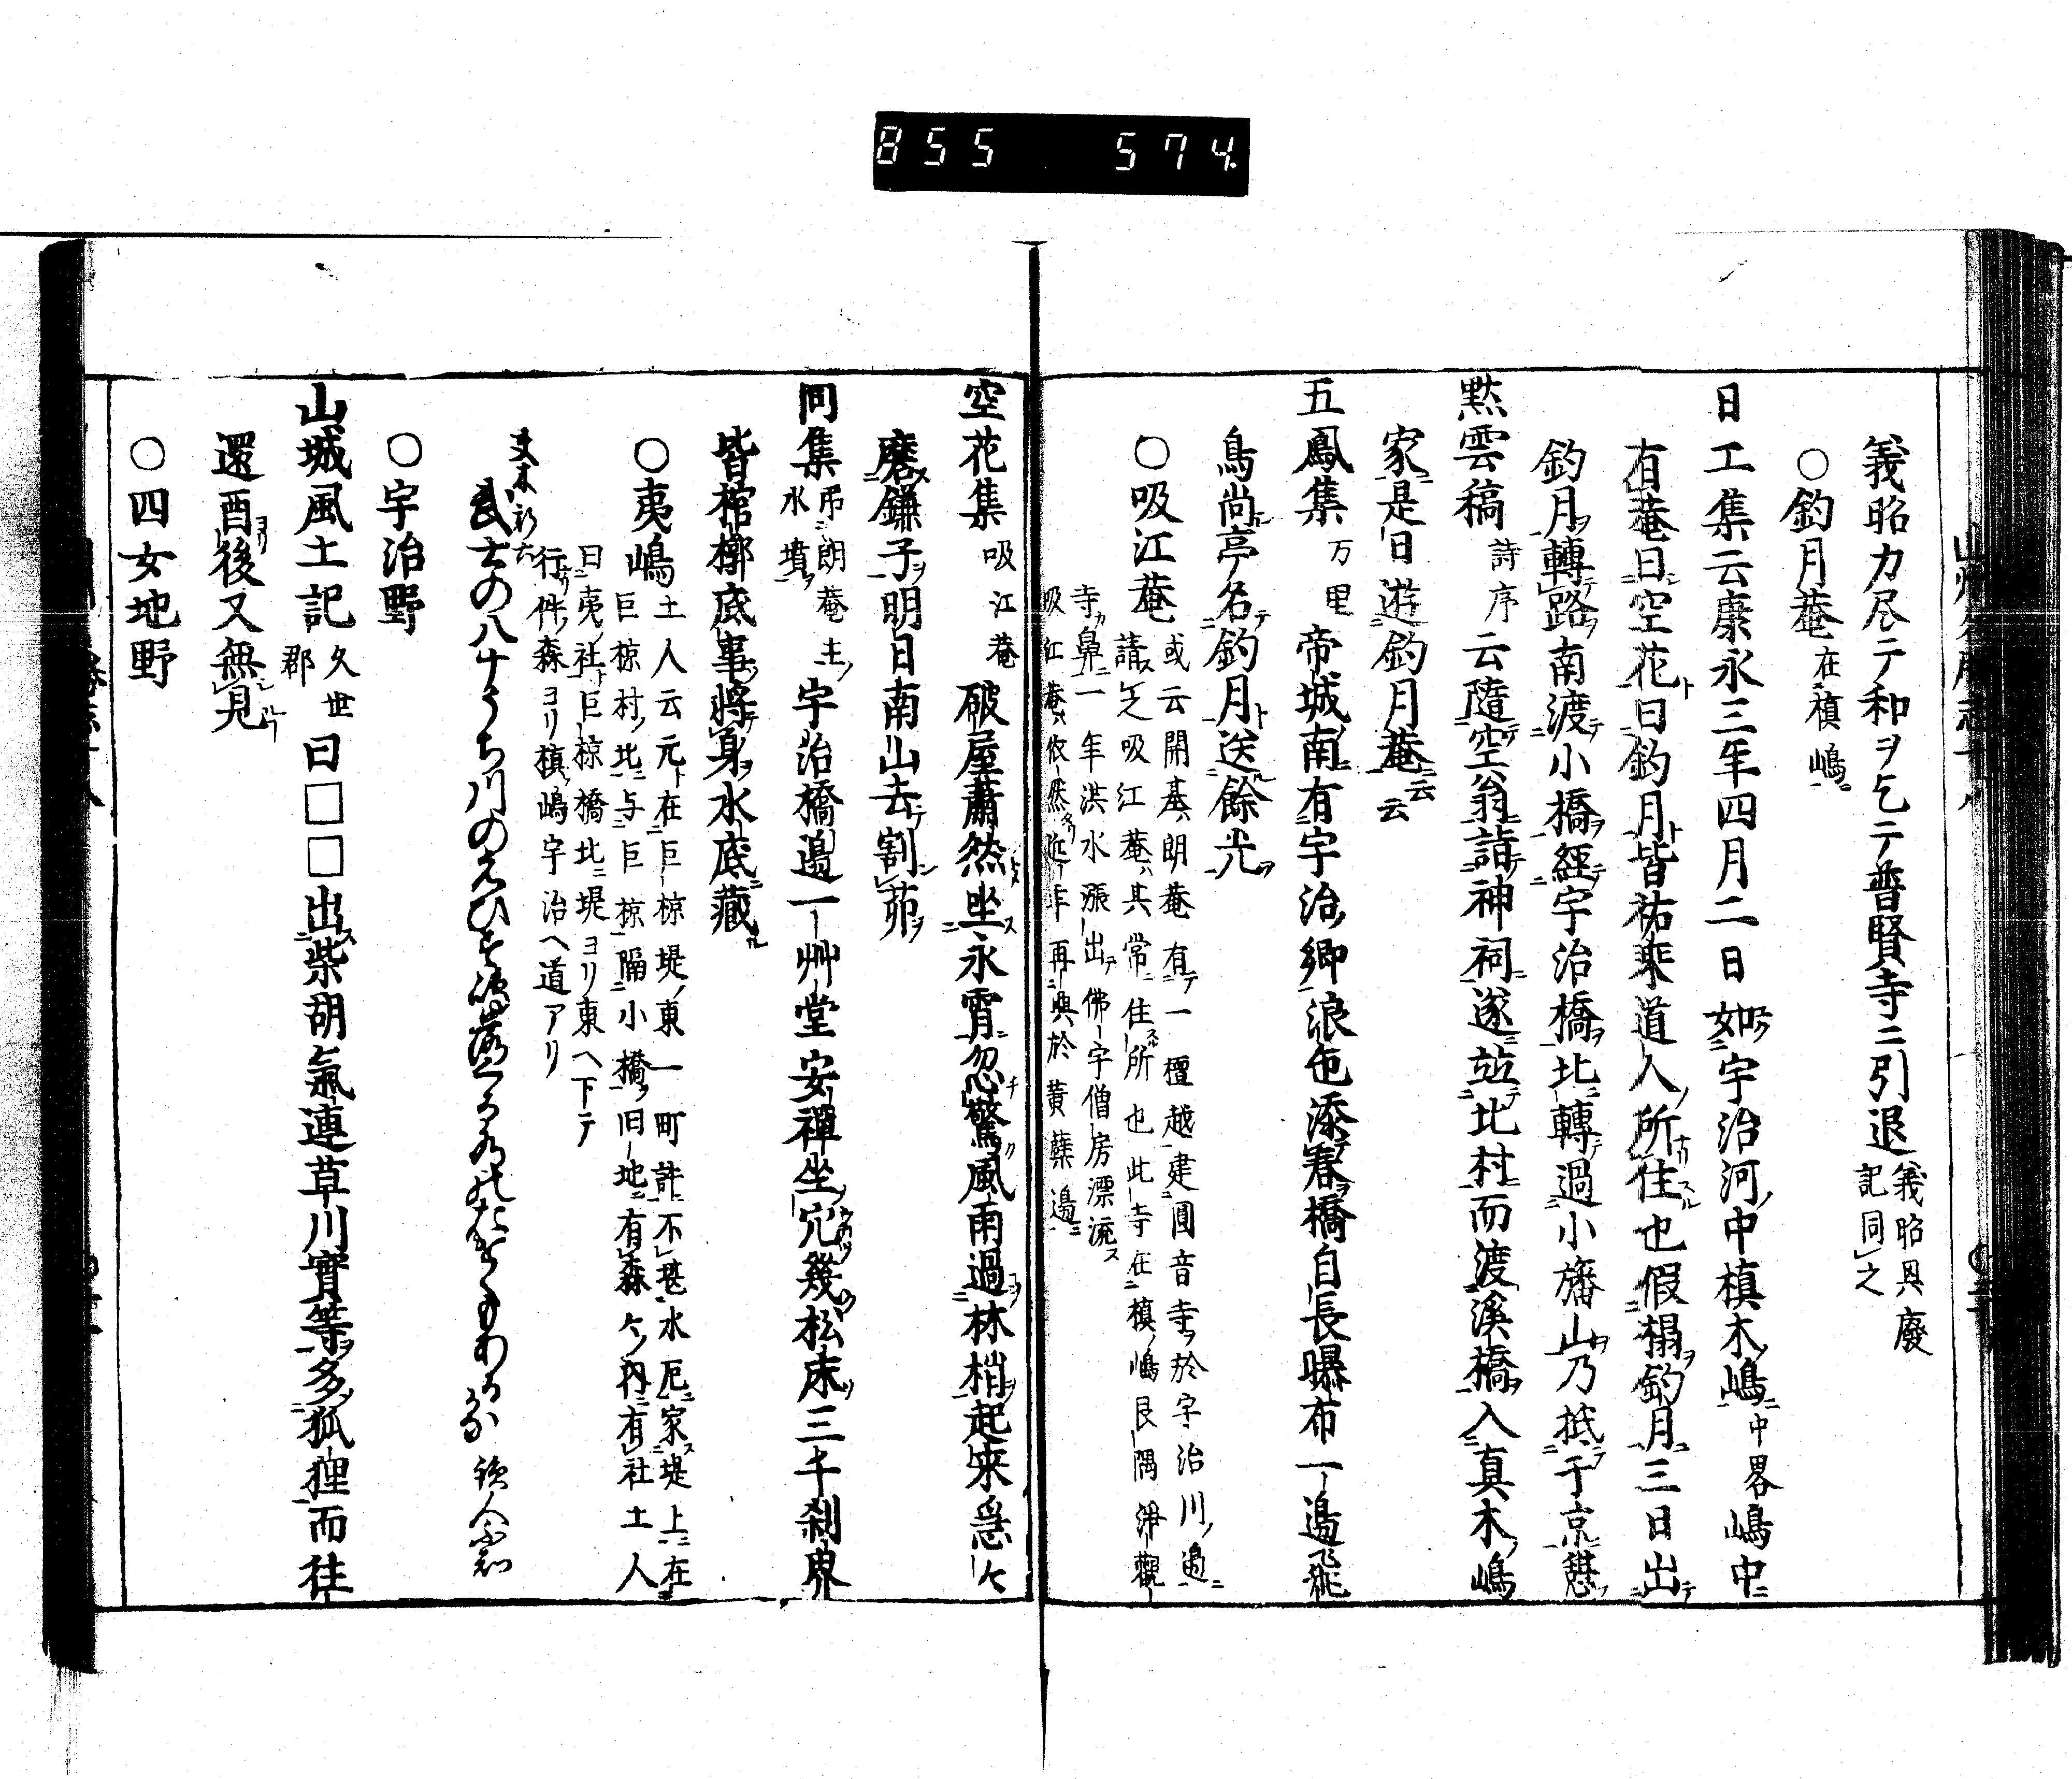 855 574
義昭力尽テ和ヲ乞テ普賢寺ニ引退 義昭異廢記同之
○釣月菴 在槙嶋
日工集云康永三年四月二日如宇治河中槙木嶋 中畧 嶋中
有菴曰空花曰釣月皆祐乘道人所住也假榻釣月三日出
釣月轉路南渡小橋經宇治橋北轉過小旛山乃抵于京憇
黙雲稿 詩序 云隨空翁詣神祠遂竝北村而渡溪橋入真木嶋
家是日遊釣月菴云云
五鳳集 万里 帝城南有宇治郷浪色添春橋自長曝布一邉飛
鳥尚亭名釣月送餘光
○吸江菴 或云開基朗菴有一檀越建圓音寺於宇治川邉
請之吸江菴其常住所也此寺在槙嶋艮隅淨觀
寺鼻一年洪水漲出佛宇僧房漂流
吸江菴依然近年再興於黄檗邉
空花集 吸江菴 破屋蕭然坐永霄忽驚風雨過林梢起来急々
磨鎌子明日南山去割茆
同集 弔朗菴主水墳 宇治橋邉一艸堂安禪坐穴幾松床三千刹界
皆棺槨底事將身水底藏
○夷嶋 土人云元在巨椋堤東一町許不堪水厄家堤上在
巨椋村北与巨椋隔小橋旧地有森々内有社土人
曰夷社巨椋橋北堤ヨリ東ヘ下テ
行件森ヨリ槙嶋宇治ヘ道アリ
武士の八十うち川のえひす嶋
○宇治野
山城風土記 久世郡 曰□□出柴胡氣連草川實等多狐狸而往
還酉後又無見
○四女地野